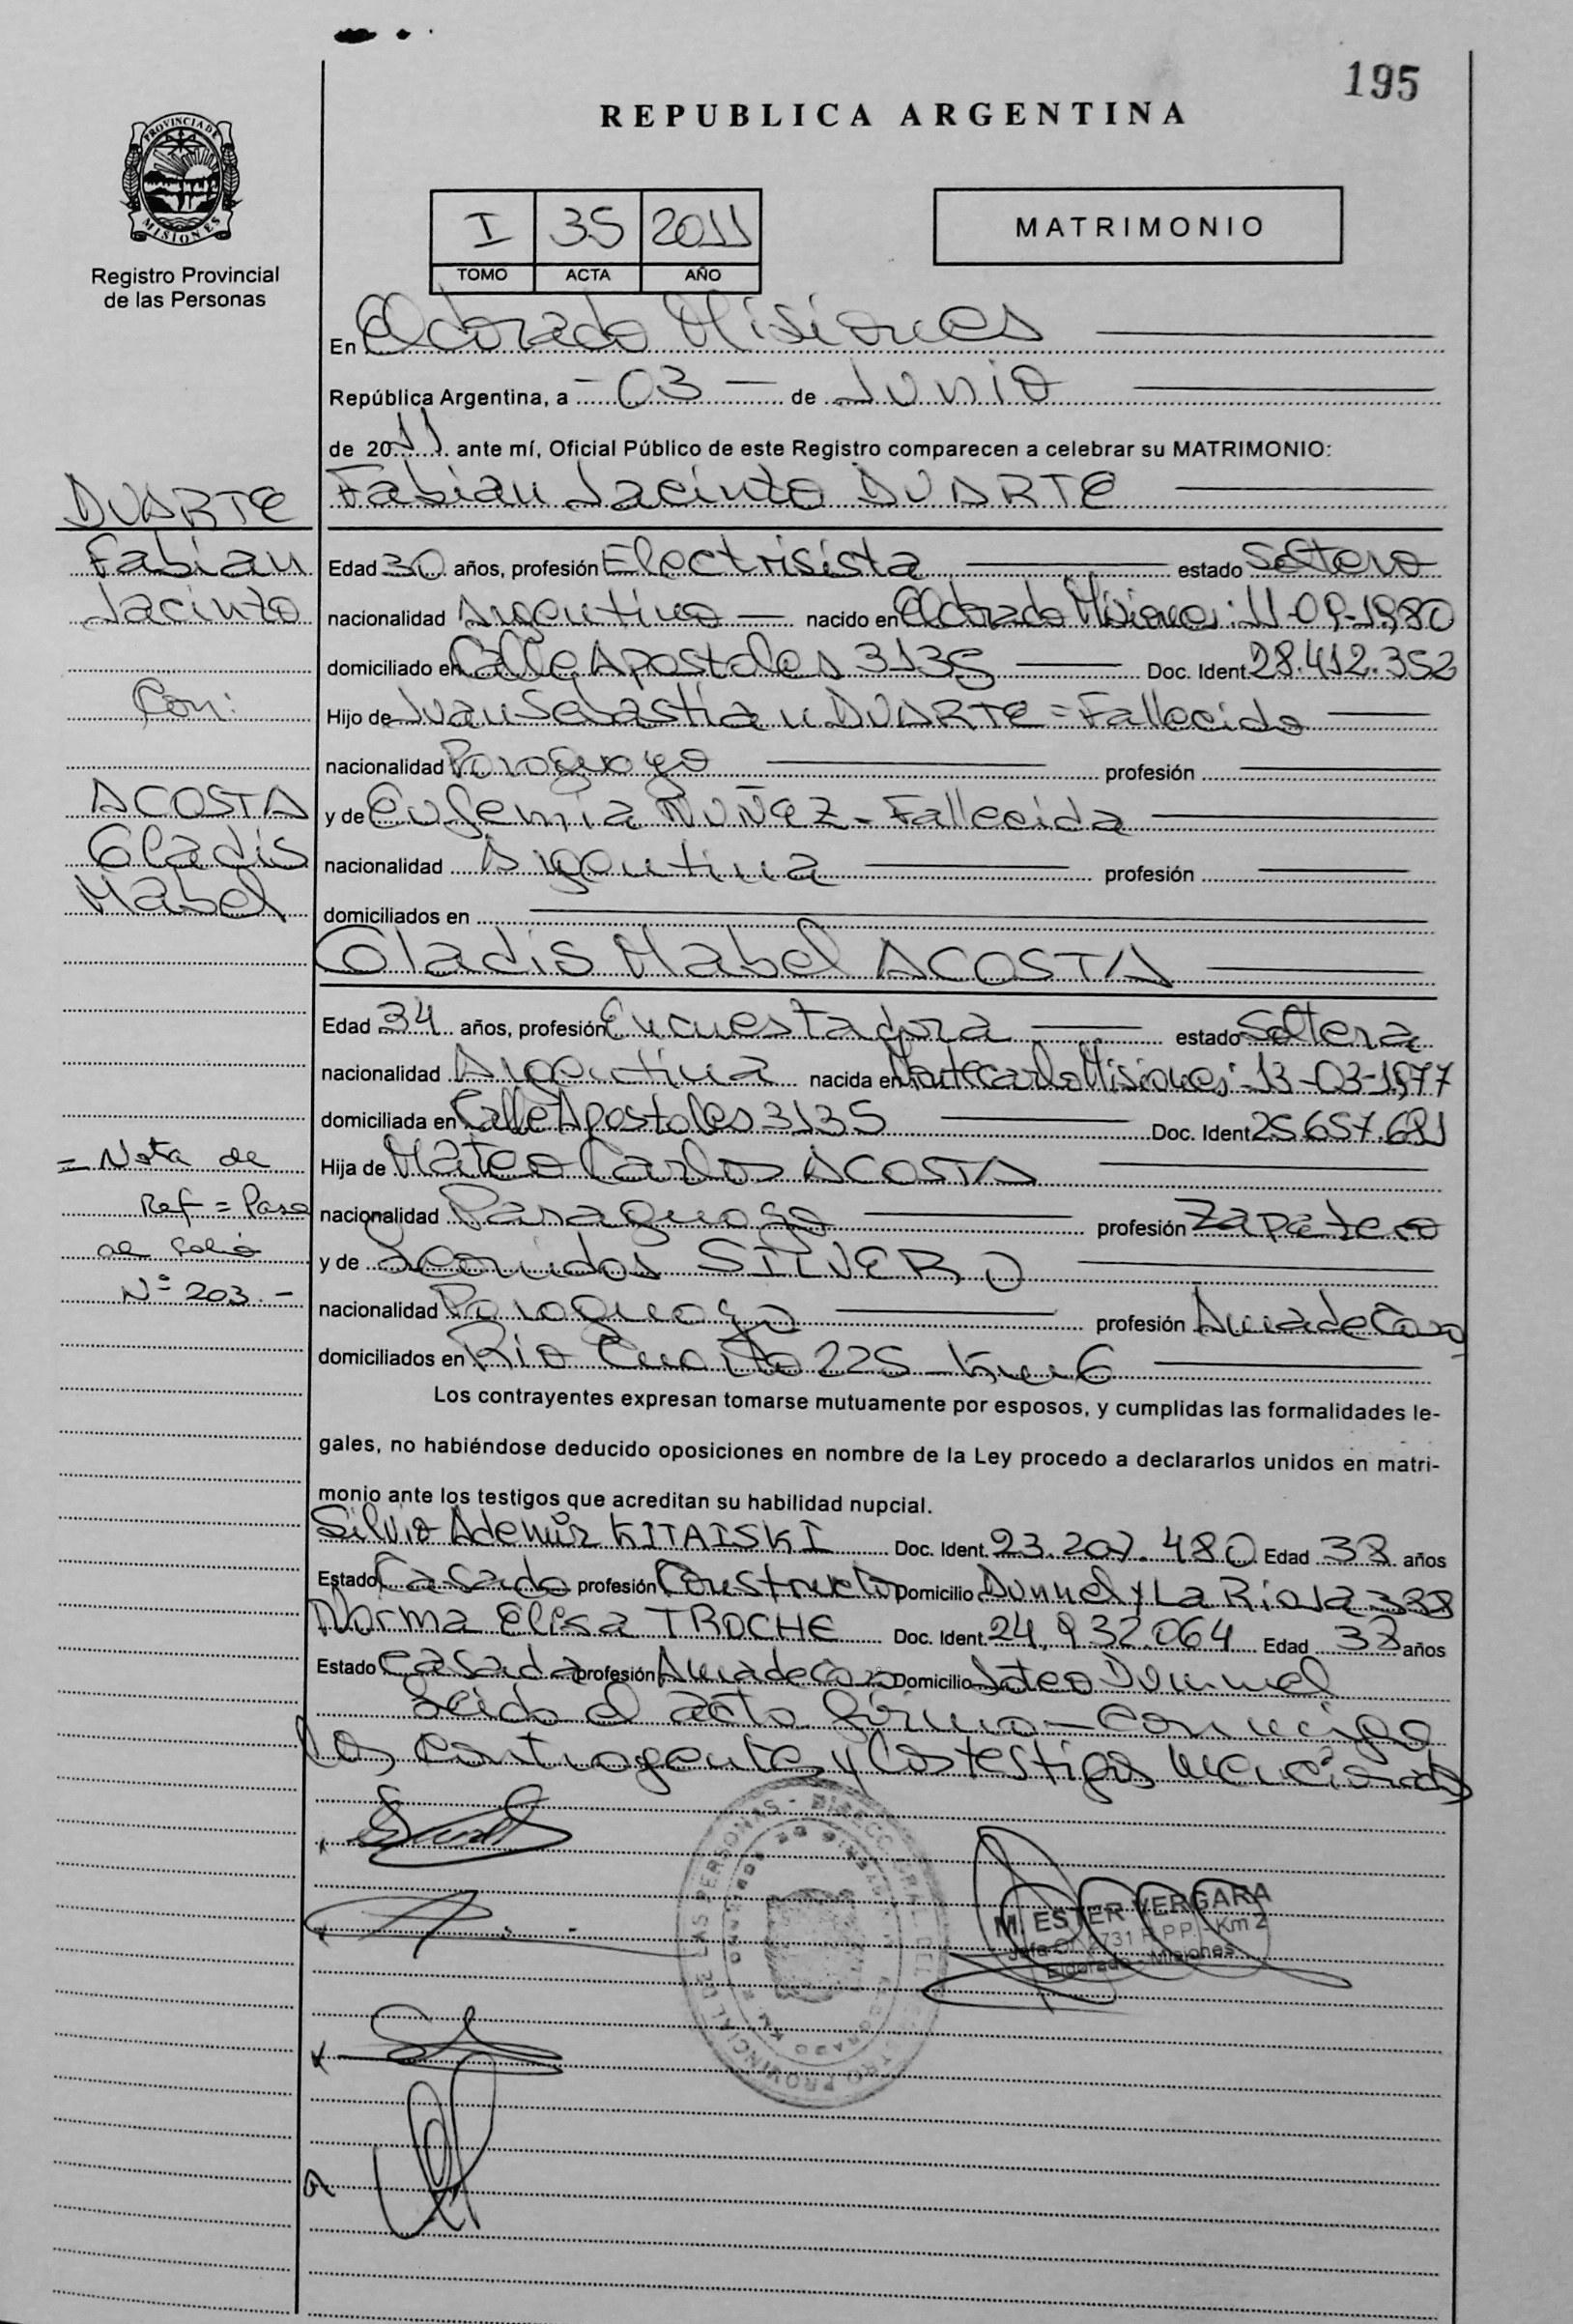 195
REPUBLICA ARGENTINA
PROVINCIA DE
MISIONES
Registro Provincial
de las Personas
I 35 2011
TOMO ACTA AÑO
MATRIMONIO
En Eldorado Misiones
República Argentina, a -03- de Junio
de 2011 ante mí, Oficial Público de este Registro comparecen a celebrar su MATRIMONIO:
Fabian Jacinto DUARTE
DUARTE
Fabian
Jacinto
Con:
ACOSTA
Gladis
Mabel
= Nota de
Ref = Pase
al folio
Nº 203.-
Edad 30 años, profesión Electrisista estado Soltero
nacionalidad Argentino nacido en Eldorado Misiones: 11-09-1980
domiciliado en Calle Apostoles 3135 Doc. Ident. 28.412.352
Hijo de Juan Sebastian DUARTE = Fallecido
nacionalidad Paraguayo profesión
y de Eufemia NUÑEZ - Fallecida
nacionalidad Argentina profesión
domiciliados en
Gladis Mabel ACOSTA
Edad 34 años, profesión Encuestadora estado Soltera
nacionalidad Argentina nacida en Montecarlo Misiones: 13-03-1977
domiciliada en Calle Apostoles 3135 Doc. Ident. 25.657.691
Hija de Mateo Carlos ACOSTA
nacionalidad Paraguayo profesión Zapatero
y de Leonidos SILVERO
nacionalidad Paraguaya profesión Ama de Casa
domiciliados en Rio Cuarto 225 - Km 6
Los contrayentes expresan tomarse mutuamente por esposos, y cumplidas las formalidades le-
gales, no habiéndose deducido oposiciones en nombre de la Ley procedo a declararlos unidos en matri-
monio ante los testigos que acreditan su habilidad nupcial.
Silvio Ademir KITAISKI Doc. Ident. 23.207.480 Edad 38 años
Estado Casado profesión Constructor Domicilio Dunnel y La Rioja 338
Norma Elisa TROCHE Doc. Ident. 24.932.064 Edad 38 años
Estado Casada profesión Ama de Casa Domicilio Dunnel
Leido el acto firma - conmigo
los contrayentes y los testigos mencionados
M. ESTER VERGARA
Jefa Of. 2731 R.P.P. Km 2
Eldorado - Misiones